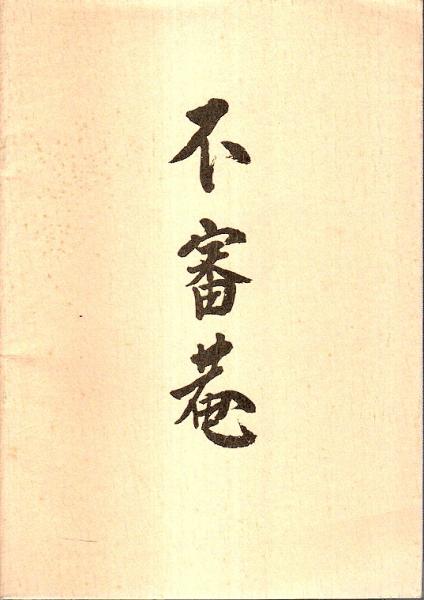 不審菴